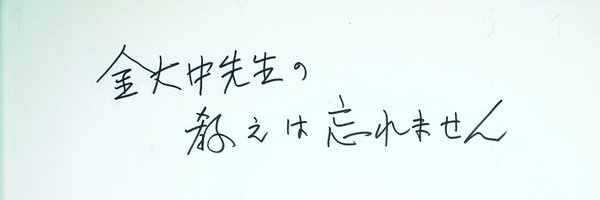 金大中先生の
教えは忘れません